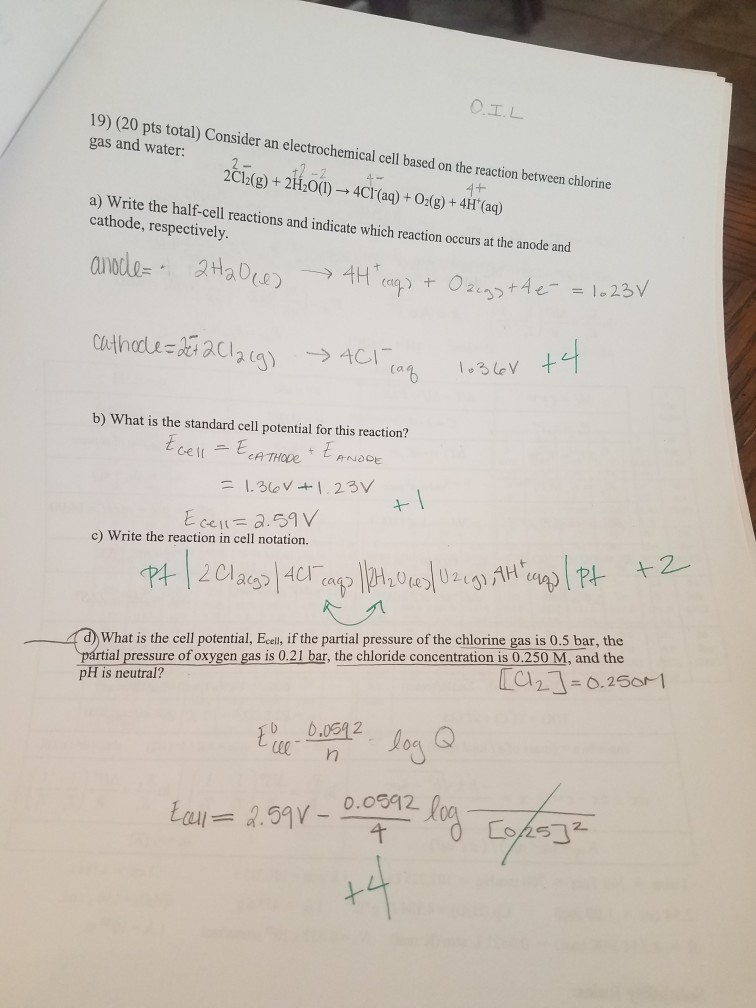 O.I.L
19) (20 pts total) Consider an electrochemical cell based on the reaction between chlorine
gas and water:
2- +2 -2 4- 4+
2Cl₂(g) + 2H₂O(l) → 4Cl⁻(aq) + O₂(g) + 4H⁺(aq)
a) Write the half-cell reactions and indicate which reaction occurs at the anode and
cathode, respectively.
anode= 2H₂O(l) → 4H⁺(aq) + O₂(g) + 4e⁻ = 1.23V
cathode= 2e⁻+ 2Cl₂(g) → 4Cl⁻(aq 1.36V +4
b) What is the standard cell potential for this reaction?
Ecell = ECATHODE + EANODE
= 1.36V + 1.23V
+1
Ecell = 2.59V
c) Write the reaction in cell notation.
Pt | 2Cl₂(g) | 4Cl⁻(aq) || 2H₂O(l) | O₂(g), 4H⁺(aq) | Pt +2
d) What is the cell potential, Ecell, if the partial pressure of the chlorine gas is 0.5 bar, the
partial pressure of oxygen gas is 0.21 bar, the chloride concentration is 0.250 M, and the
pH is neutral?
[Cl₂] = 0.250M
E⁰cell - 0.0592/n · log Q
Ecell = 2.59V - 0.0592/4 log /[0.25]²
+4